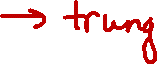 → trung